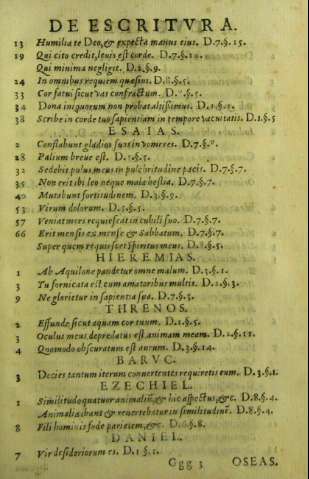 DE ESCRITVRA.
13 Humilia te Deo, & expecta manus eius. D.7.§.15.
19 Qui cito credit, leuis est corde. D.7.§.10.
Qui minima negligit. D.2.§.9.
24 In omnibus requiem quæsiui. D.8.§.5.
33 Cor fatui sicut vas confractum.
34 Dona iniquorum non probat altissimus. D.1.§.1.
38 Scribe in corde tuo sapientiam in tempore vacuitatis. D.1.§.5
ESAIAS.
2 Conflabunt gladios suos in vomeres. D.7.§.
28 Palium breue est. D.1.§.5.
32 Sedebit pulus meus in pulchritudine pacis. D.7.§.7.
35 Non erit ibi leo neque mala bestia. D.7.§.7.
40 Mutabunt fortitudinem. D.3.§.9.
53 Virum dolorum. D.5.§.5.
57 Veniat mors requiescat in cubili suo. D.7.§.7.
66 Erit mensis ex mense & Sabbatum. D.7.§.7.
Super quem requiescet spiritus meus.
HIEREMIAS.
1 Ab Aquilone pandetur omne malum. D.3.§.1.
3 Tu fornicata est cum amatoribus multis. D.2.§.3.
9 Ne glorietur in sapientia sua. D.7.§.3.
THRENOS.
2 Effunde sicut aquam cor tuum. D.1.§.5.
3 Oculus meus depredatus est animam meam. D.2.§.11.
4 Quomodo obscuratum est aurum. D.3.§.14.
BARVC.
3 Decies tantum iterum conuertentes requiretis eum. D.3.§.1.
EZECHIEL.
1 Similitudo quatuor animaliũ, & hic aspectus, &c. D.8.§.4.
Animalia ibant & reuertebatur in similitudinẽ. D.8.§.4.
8 Fili hominis fode parietem, &c. D.6.§.8.
DANIEL.
7 Vir desideriorum es. D.1.§.1.
Ggg 3 OSEAS.